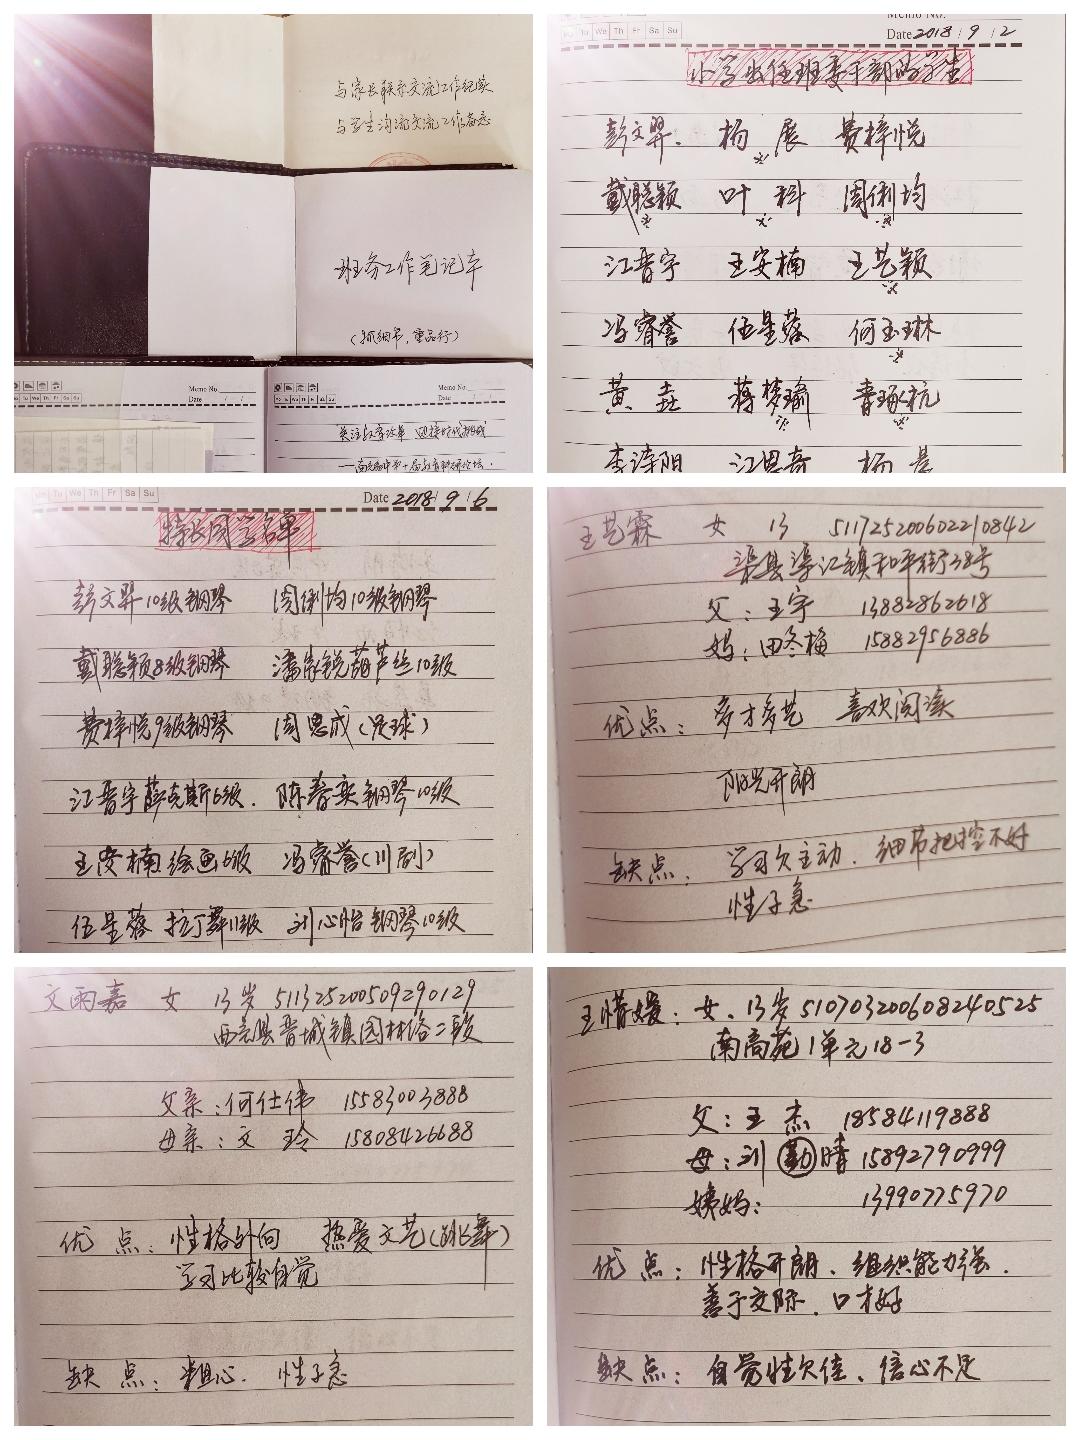 与家长联系交流工作纪实
与学生沟流交流工作备忘
班务工作笔记本
(抓细节,重品行)
Memo No.
Date / /
Mo Tu We Th Fr Sa Su
Memo No.
Date / /
Mo Tu We Th Fr Sa Su
关注教育改革 迎接时代挑战
Memo No.
Tu We Th Fr Sa Su
Date 2018 / 9 / 2
小学出任班委干部的学生
彭文羿. 杨展 费梓悦
戴聪颖 叶科 周俐均
江晋宇 王安楠 王艺颖
冯睿誉 伍星蓉 何玉琳
黄垚 蒋梦瑜 青琢杭
江思奇 杨
Tu We Th Fr Sa Su
Date 2018 / 9 / 6
特长同学名单
彭文羿10级钢琴 周俐均10级钢琴
戴聪颖8级钢琴 潘家锐葫芦丝10级
费梓悦9级钢琴 周思成(足球)
江晋宇萨克斯6级. 陈春奕钢琴10级
王安楠绘画6级 冯睿誉(川剧)
伍星蓉 拉丁舞11级 刘心怡钢琴10级
王艺霖 女 13 511725200602210842
渠县渠江镇和平街38号
父:王宇 13882862618
妈:田冬梅 15882956886
优点: 多才多艺 喜欢阅读
阳光开朗
缺点: 学习欠主动.细节把控不好
性子急
文雨嘉 女 13岁 511325200509290129
西充县晋城镇园林路二段
父亲:何仕伟 15583003888
母亲:文玲 15808426688
优点:性格外向 热爱文艺(跳舞)
学习比较自觉
缺点:粗心. 性子急
女.13岁 510703200608240525
南高苑1单元18-3
父:王杰 18584119888
母:刘勤晴 15892790999
姨妈: 13990775970
优点:性格开朗、组织能力强.
善于交际.口才好
缺点:自觉性欠佳、信心不足